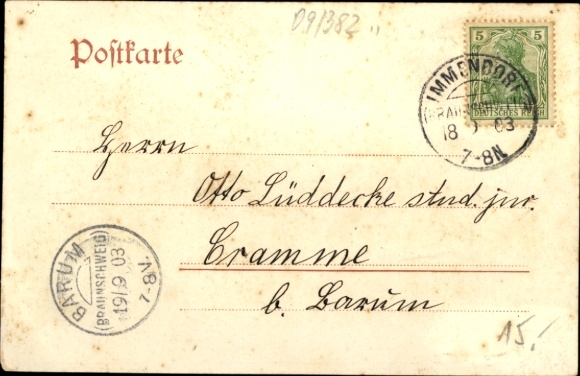 09/382 "
Postkarte
5 5
DEUTSCHES REICH
IMMENDORF
(BRAUNSCHWEIG)
18 9 03
7-8N
Herrn
Otto Lüddecke stud. jur.
Cramme
b. Barum
BARUM
(BRAUNSCHWEIG)
19/9 03
7-8V.
15.-